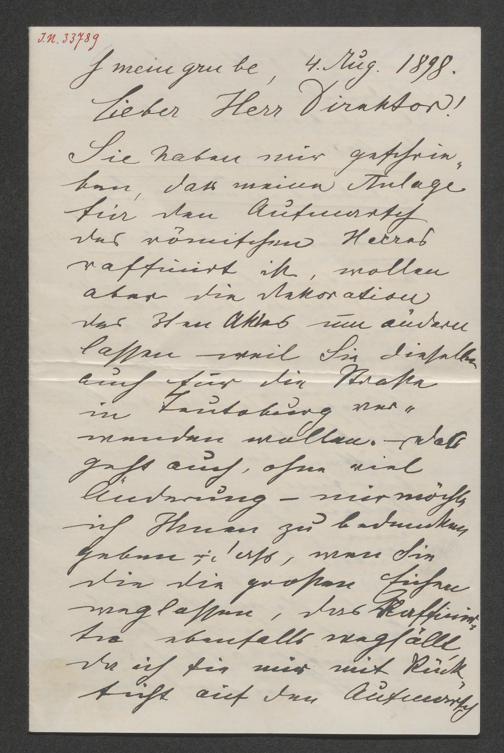 J.N. 33789
Smeingrube, 4. Aug. 1898.
Lieber Herr Direktor!
Sie haben mir geschrie-
ben, daß meine Anlage
für den Aufmarsch
des römischen Heeres
raffinirt ist, wollen
aber die Dekoration
des 3ten Aktes um ändern
lassen weil Sie dieselbe
auch für die Straße
in Teutoburg ver-
wenden wollen. – das
geht auch, ohne viel
Änderung – nur möchte
ich Ihnen zu bedenken
geben, wen Sie
die die großen Eichen
weglassen, das Raffinir-
te ebenfalls wegfällt
da ich sie nur mit Rück-
sicht auf den Aufmarsch